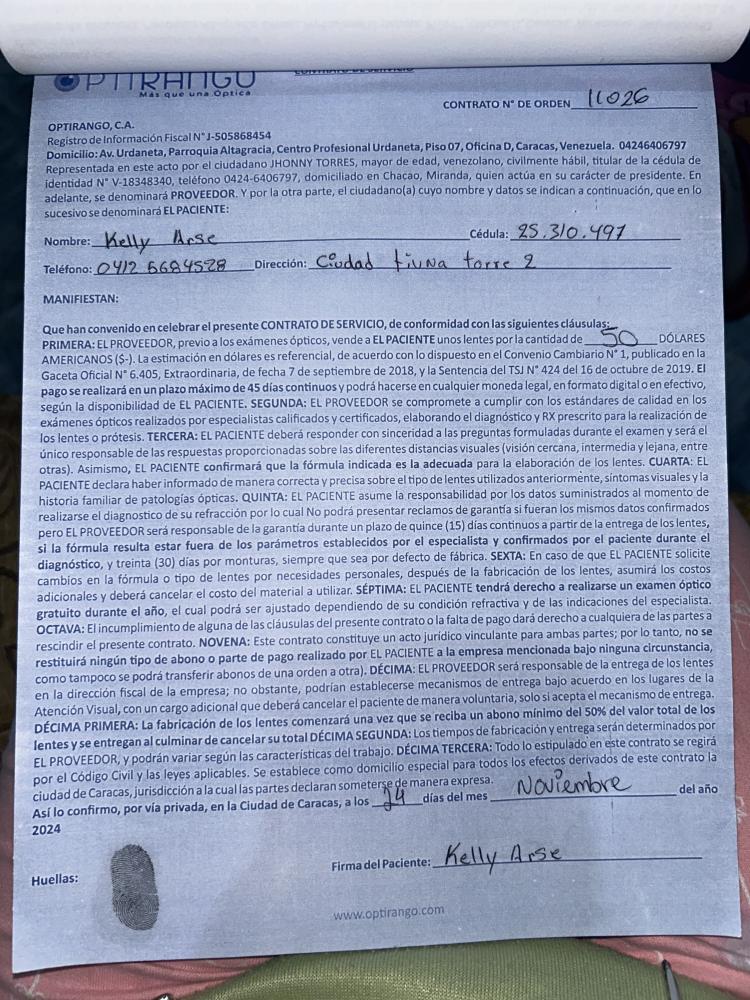 OPTIRANGO
Más que una Óptica
CONTRATO DE SERVICIO
CONTRATO N° DE ORDEN 11026
OPTIRANGO, C.A.
Registro de Información Fiscal N° J-505868454
Domicilio: Av. Urdaneta, Parroquia Altagracia, Centro Profesional Urdaneta, Piso 07, Oficina D, Caracas, Venezuela. 04246406797
Representada en este acto por el ciudadano JHONNY TORRES, mayor de edad, venezolano, civilmente hábil, titular de la cédula de
identidad N° V-18348340, teléfono 0424-6406797, domiciliado en Chacao, Miranda, quien actúa en su carácter de presidente. En
adelante, se denominará PROVEEDOR. Y por la otra parte, el ciudadano(a) cuyo nombre y datos se indican a continuación, que en lo
sucesivo se denominará EL PACIENTE:
Nombre: Kelly Arse Cédula: 25.310.497
Teléfono: 0412 6684528 Dirección: Ciudad tiuna torre 2
MANIFIESTAN:
Que han convenido en celebrar el presente CONTRATO DE SERVICIO, de conformidad con las siguientes cláusulas:
PRIMERA: EL PROVEEDOR, previo a los exámenes ópticos, vende a EL PACIENTE unos lentes por la cantidad de 50 DÓLARES
AMERICANOS ($-). La estimación en dólares es referencial, de acuerdo con lo dispuesto en el Convenio Cambiario N° 1, publicado en la
Gaceta Oficial N° 6.405, Extraordinaria, de fecha 7 de septiembre de 2018, y la Sentencia del TSJ N° 424 del 16 de octubre de 2019. El
pago se realizará en un plazo máximo de 45 días continuos y podrá hacerse en cualquier moneda legal, en formato digital o en efectivo,
según la disponibilidad de EL PACIENTE. SEGUNDA: EL PROVEEDOR se compromete a cumplir con los estándares de calidad en los
exámenes ópticos realizados por especialistas calificados y certificados, elaborando el diagnóstico y RX prescrito para la realización de
los lentes o prótesis. TERCERA: EL PACIENTE deberá responder con sinceridad a las preguntas formuladas durante el examen y será el
único responsable de las respuestas proporcionadas sobre las diferentes distancias visuales (visión cercana, intermedia y lejana, entre
otras). Asimismo, EL PACIENTE confirmará que la fórmula indicada es la adecuada para la elaboración de los lentes. CUARTA: EL
PACIENTE declara haber informado de manera correcta y precisa sobre el tipo de lentes utilizados anteriormente, síntomas visuales y la
historia familiar de patologías ópticas. QUINTA: EL PACIENTE asume la responsabilidad por los datos suministrados al momento de
realizarse el diagnostico de su refracción por lo cual No podrá presentar reclamos de garantía si fueran los mismos datos confirmados
pero EL PROVEEDOR será responsable de la garantía durante un plazo de quince (15) días continuos a partir de la entrega de los lentes,
si la fórmula resulta estar fuera de los parámetros establecidos por el especialista y confirmados por el paciente durante el
diagnóstico, y treinta (30) días por monturas, siempre que sea por defecto de fábrica. SEXTA: En caso de que EL PACIENTE solicite
cambios en la fórmula o tipo de lentes por necesidades personales, después de la fabricación de los lentes, asumirá los costos
adicionales y deberá cancelar el costo del material a utilizar. SÉPTIMA: EL PACIENTE tendrá derecho a realizarse un examen óptico
gratuito durante el año, el cual podrá ser ajustado dependiendo de su condición refractiva y de las indicaciones del especialista.
OCTAVA: El incumplimiento de alguna de las cláusulas del presente contrato o la falta de pago dará derecho a cualquiera de las partes a
rescindir el presente contrato. NOVENA: Este contrato constituye un acto jurídico vinculante para ambas partes; por lo tanto, no se
restituirá ningún tipo de abono o parte de pago realizado por EL PACIENTE a la empresa mencionada bajo ninguna circunstancia,
como tampoco se podrá transferir abonos de una orden a otra). DÉCIMA: EL PROVEEDOR será responsable de la entrega de los lentes
en la dirección fiscal de la empresa; no obstante, podrían establecerse mecanismos de entrega bajo acuerdo en los lugares de la
Atención Visual, con un cargo adicional que deberá cancelar el paciente de manera voluntaria, solo si acepta el mecanismo de entrega.
DÉCIMA PRIMERA: La fabricación de los lentes comenzará una vez que se reciba un abono mínimo del 50% del valor total de los
lentes y se entregan al culminar de cancelar su total DÉCIMA SEGUNDA: Los tiempos de fabricación y entrega serán determinados por
EL PROVEEDOR, y podrán variar según las características del trabajo. DÉCIMA TERCERA: Todo lo estipulado en este contrato se regirá
por el Código Civil y las leyes aplicables. Se establece como domicilio especial para todos los efectos derivados de este contrato la
ciudad de Caracas, jurisdicción a la cual las partes declaran someterse de manera expresa.
Así lo confirmo, por vía privada, en la Ciudad de Caracas, a los 24 días del mes Noviembre del año
2024
Huellas: Firma del Paciente: Kelly Arse
www.optirango.com